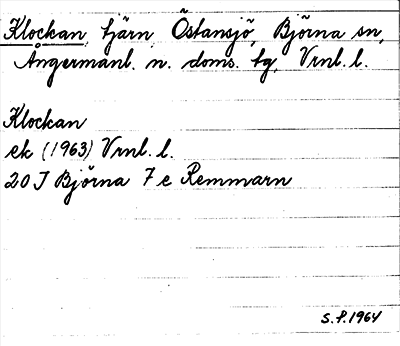 Klockan, tjärn, Östansjö, Björna sn,
Ångermanl. n. doms. tg, Vrnl. l.
Klockan
ek (1963) Vrnl. l.
20 I Björna 7 e Remmarn
S.P. 1964